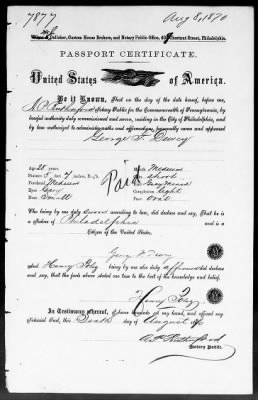 7877
Aug 8, 1870
Custom House Broker, and Notary Public Office, Chestnut Street, Philadelphia
PASSPORT CERTIFICATE.
United States of America.
Be it Known, That on the day of the date hereof, before me,
Notary Public for the Commonwealth of Pennsylvania, by
lawful authority duly commissioned and sworn, residing in the City of Philadelphia, and
by law authorized to administer oaths and affirmations, personally came and appeared
George F. Dewey
Age 28 years. Mouth Medium
Stature 5 feet 7 inches, Chin Short
Forehead Medium Hair
Eyes Gray Complexion Light
Nose Small Face Oval
Paid
Who being by me duly sworn according to law, did declare and say, That he is
a of Philadelphia and is a
Citizen of the United States.
George F. Dewey
And Henry being by me also duly affirmed did declare
and say, that the facts above stated are true to the best of his knowledge and belief.
Henry
In Testimony whereof, I have hereunto set my hand, and affixed my
official Seal, this day of August 1870
Rutherford
Notary Public.